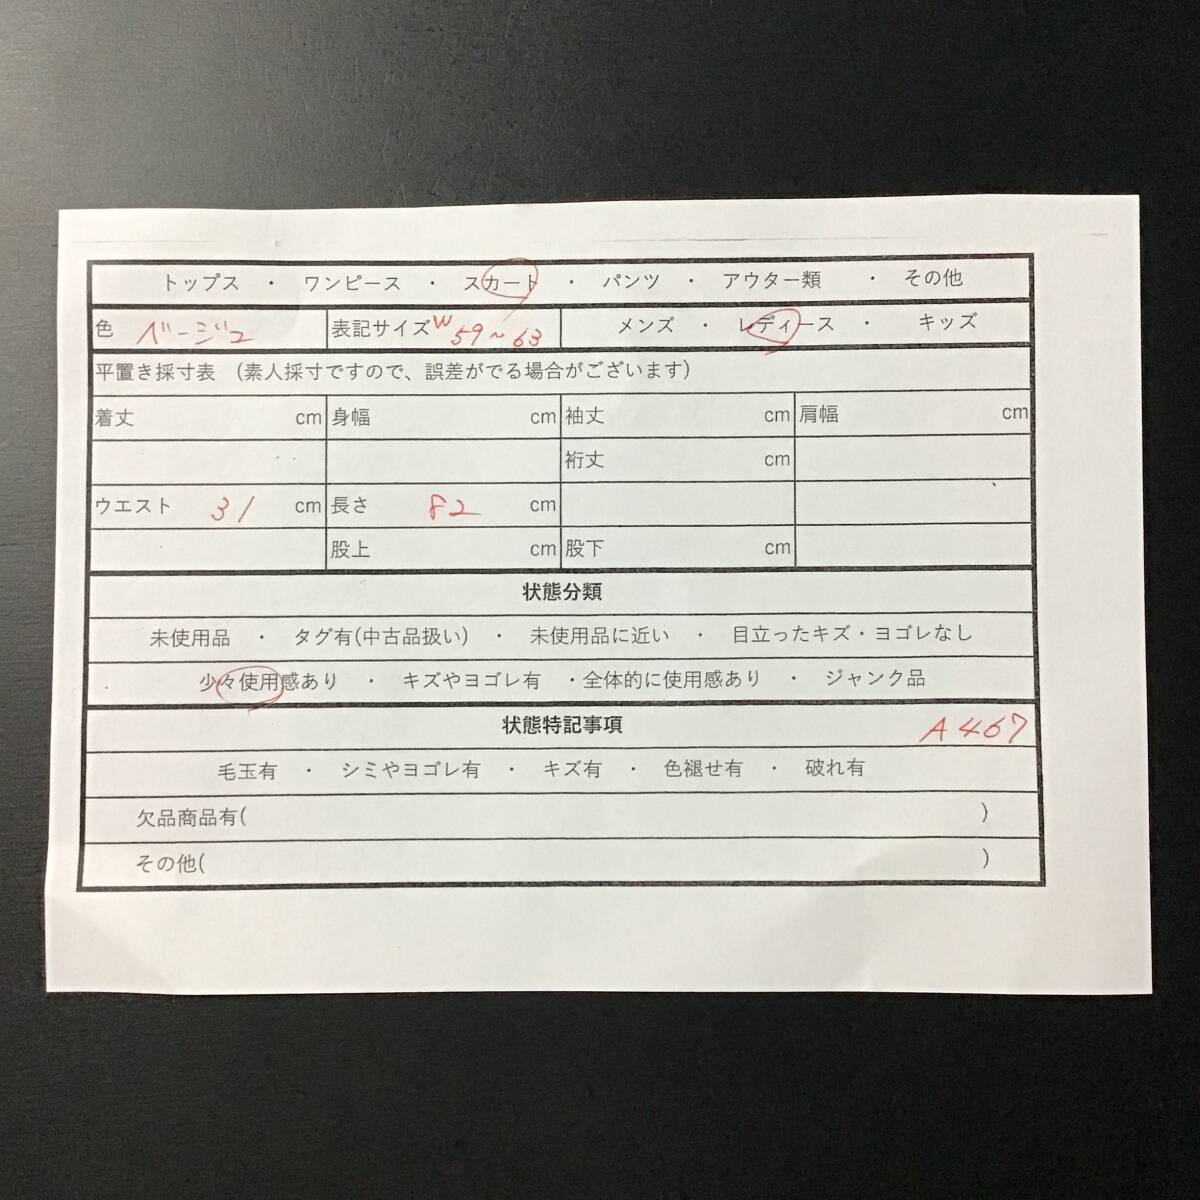 トップス ・ ワンピース ・ スカート ・ パンツ ・ アウター類 ・ その他
色 ベージュ 表記サイズ W 59~63 メンズ ・ レディース ・ キッズ
平置き採寸表 (素人採寸ですので、誤差がでる場合がございます)
着丈 cm 身幅 cm 袖丈 cm 肩幅 cm
裄丈 cm
ウエスト 31 cm 長さ 82 cm
股上 cm 股下 cm
状態分類
未使用品 ・ タグ有(中古品扱い) ・ 未使用品に近い ・ 目立ったキズ・ヨゴレなし
少々使用感あり ・ キズやヨゴレ有 ・全体的に使用感あり ・ ジャンク品
状態特記事項 A467
毛玉有 ・ シミやヨゴレ有 ・ キズ有 ・ 色褪せ有 ・ 破れ有
欠品商品有( )
その他( )